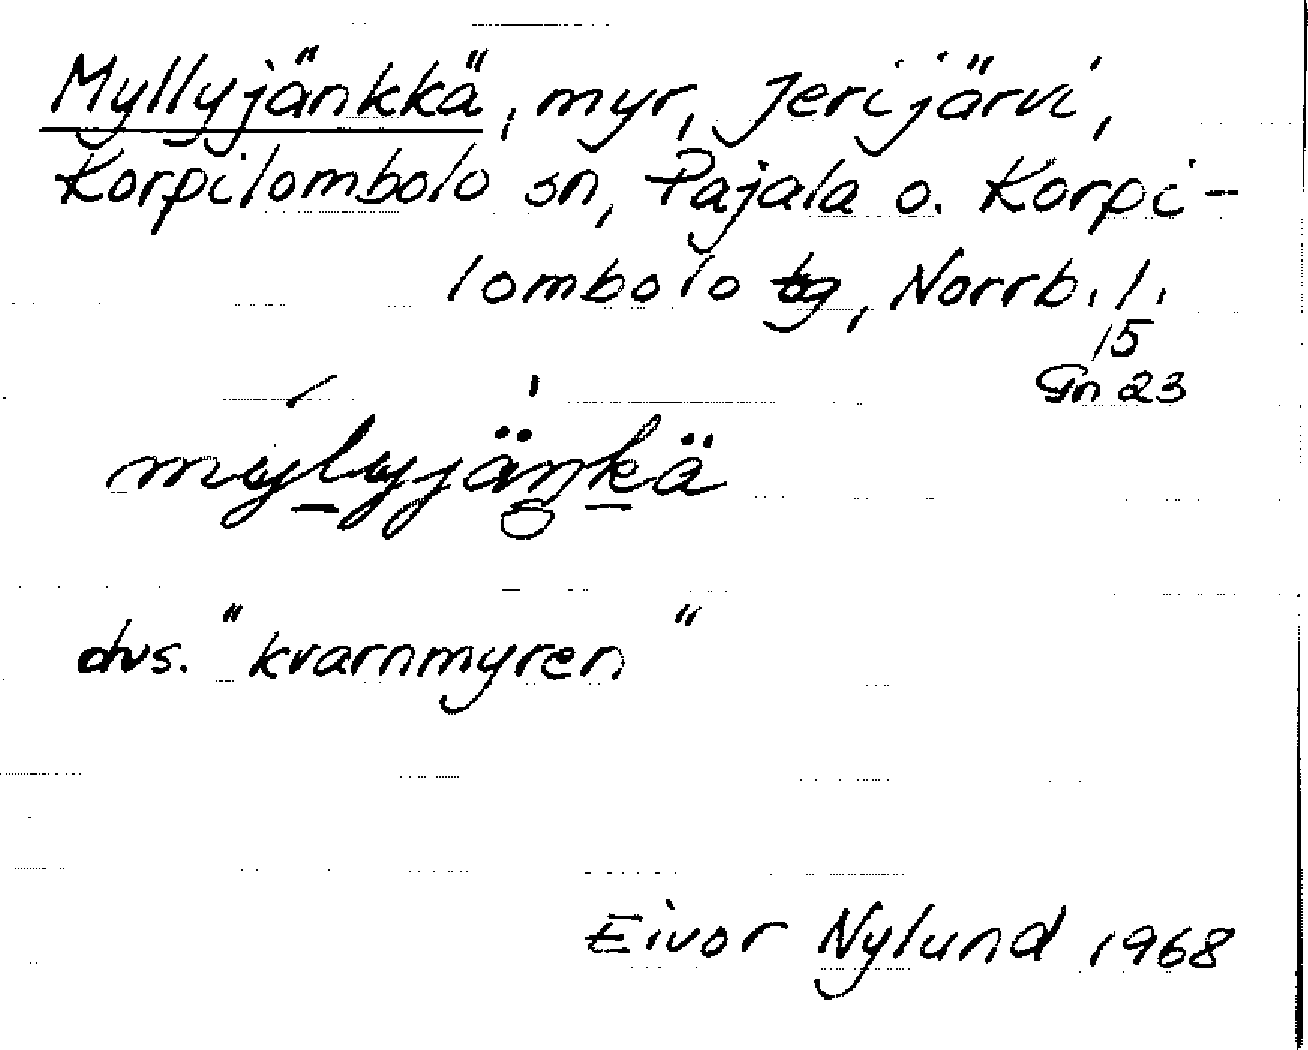 Myllyjänkkä, myr, Jerijärvi,
Korpilombolo sn, Pajala o. Korpi-
lombolo tg, Norrb. l.
15
Gn 23
mylyjäŋkä
dvs. "kvarnmyren"
Eivor Nylund 1968